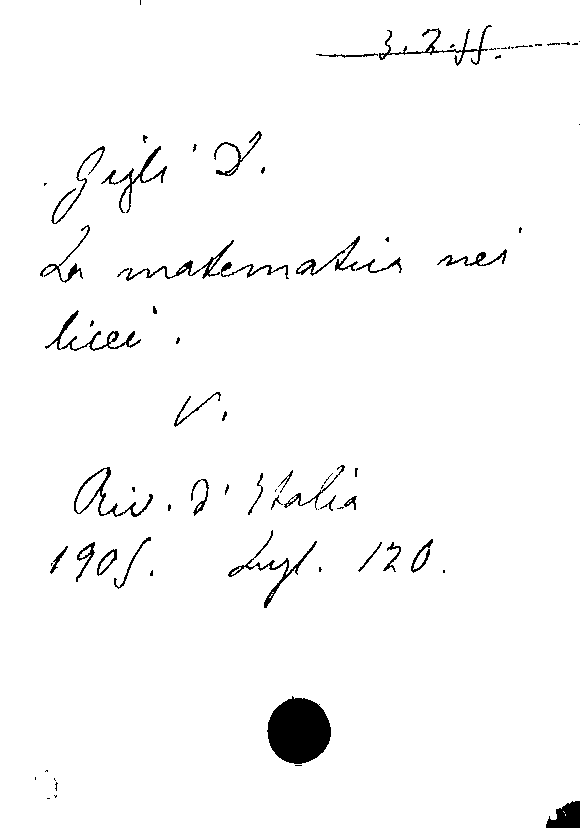 3.2.55.
Gigli D.
La matematica nei
licei.
V.
Riv. d'Italia
1905. Lugl. 120.